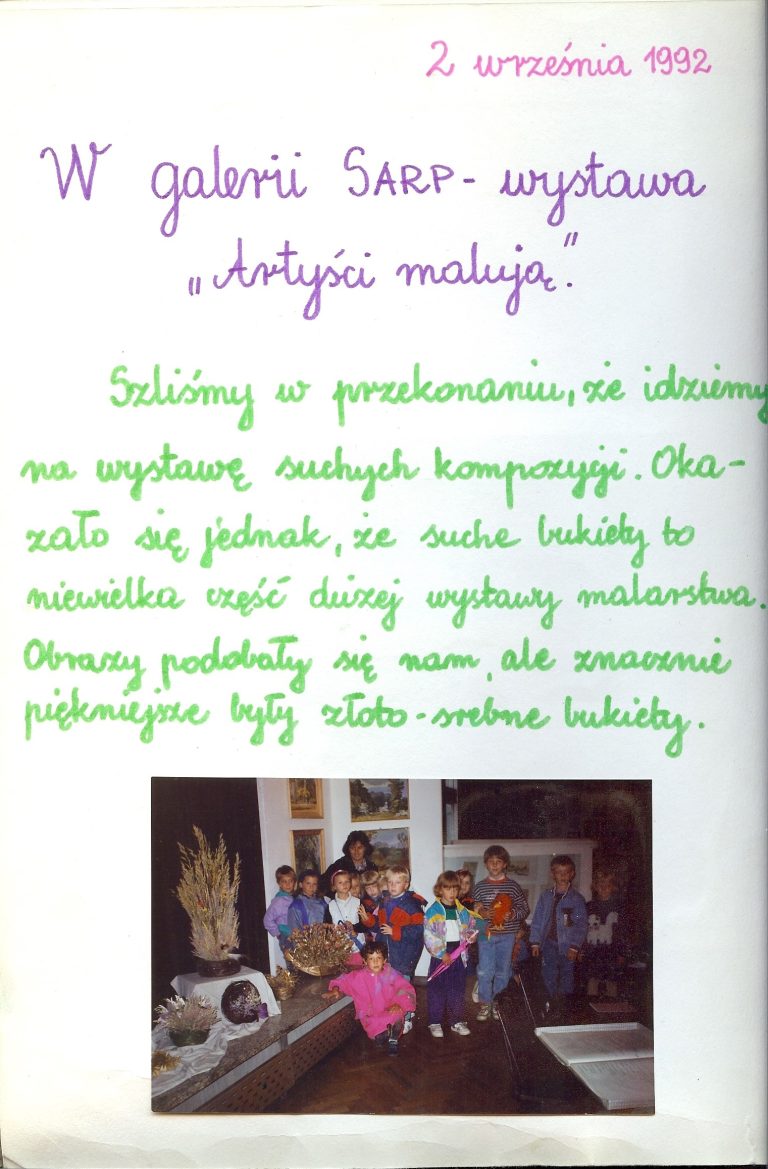 2 września 1992
W galerii SARP - wystawa
„Artyści malują".
Szliśmy w przekonaniu, że idziemy
na wystawę suchych kompozycji. Oka-
zało się jednak, że suche bukiety to
niewielka część dużej wystawy malarstwa.
Obrazy podobały się nam, ale znacznie
piękniejsze były złoto-srebne bukiety.